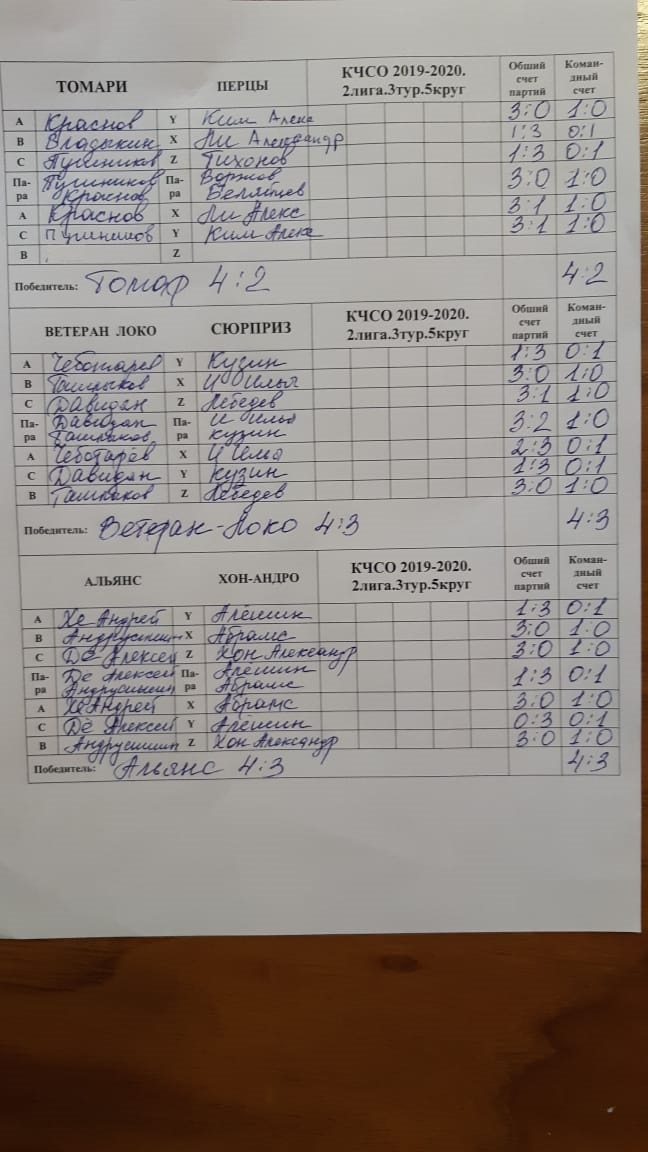 ТОМАРИ ПЕРЦЫ КЧСО 2019-2020. 2лига.3тур.5круг Обший счет партий Коман-дный счет
A Краснов Y Ким Алекс 3:0 1:0
B Владыкин X Ли Александр 1:3 0:1
C Пушников Z Тихонов 1:3 0:1
Па-ра Пушников Краснов Па-ра Беляйцев 3:0 1:0
A Краснов X Ли Алекс 3:1 1:0
C Y Ким Алекс 3:1 1:0
B Z
Победитель: Томар 4:2 4:2
ВЕТЕРАН ЛОКО СЮРПРИЗ КЧСО 2019-2020. 2лига.3тур.5круг Обший счет партий Коман-дный счет
A Чеботарев Y Кузин 1:3 0:1
B X И Илья 3:0 1:0
C Давидян Z Лебедев 3:1 1:0
Па-ра Давидян Па-ра И Илья Кузин 3:2 1:0
A Чеботарёв X И Илья 2:3 0:1
C Давидян Y Кузин 1:3 0:1
B Z Лебедев 3:0 1:0
Победитель: Ветеран-Локо 4:3 4:3
АЛЬЯНС ХОН-АНДРО КЧСО 2019-2020. 2лига.3тур.5круг Обший счет партий Коман-дный счет
A Хе Андрей Y Алёшин 1:3 0:1
B X Абрамс 3:0 1:0
C Дё Алексей Z Хон Александр 3:0 1:0
Па-ра Де Алексей Па-ра Алёшин Абрамс 1:3 0:1
A Хе Андрей X Абрамс 3:0 1:0
C Дё Алексей Y Алёшин 0:3 0:1
B Z Хон Александр 3:0 1:0
Победитель: Альянс 4:3 4:3